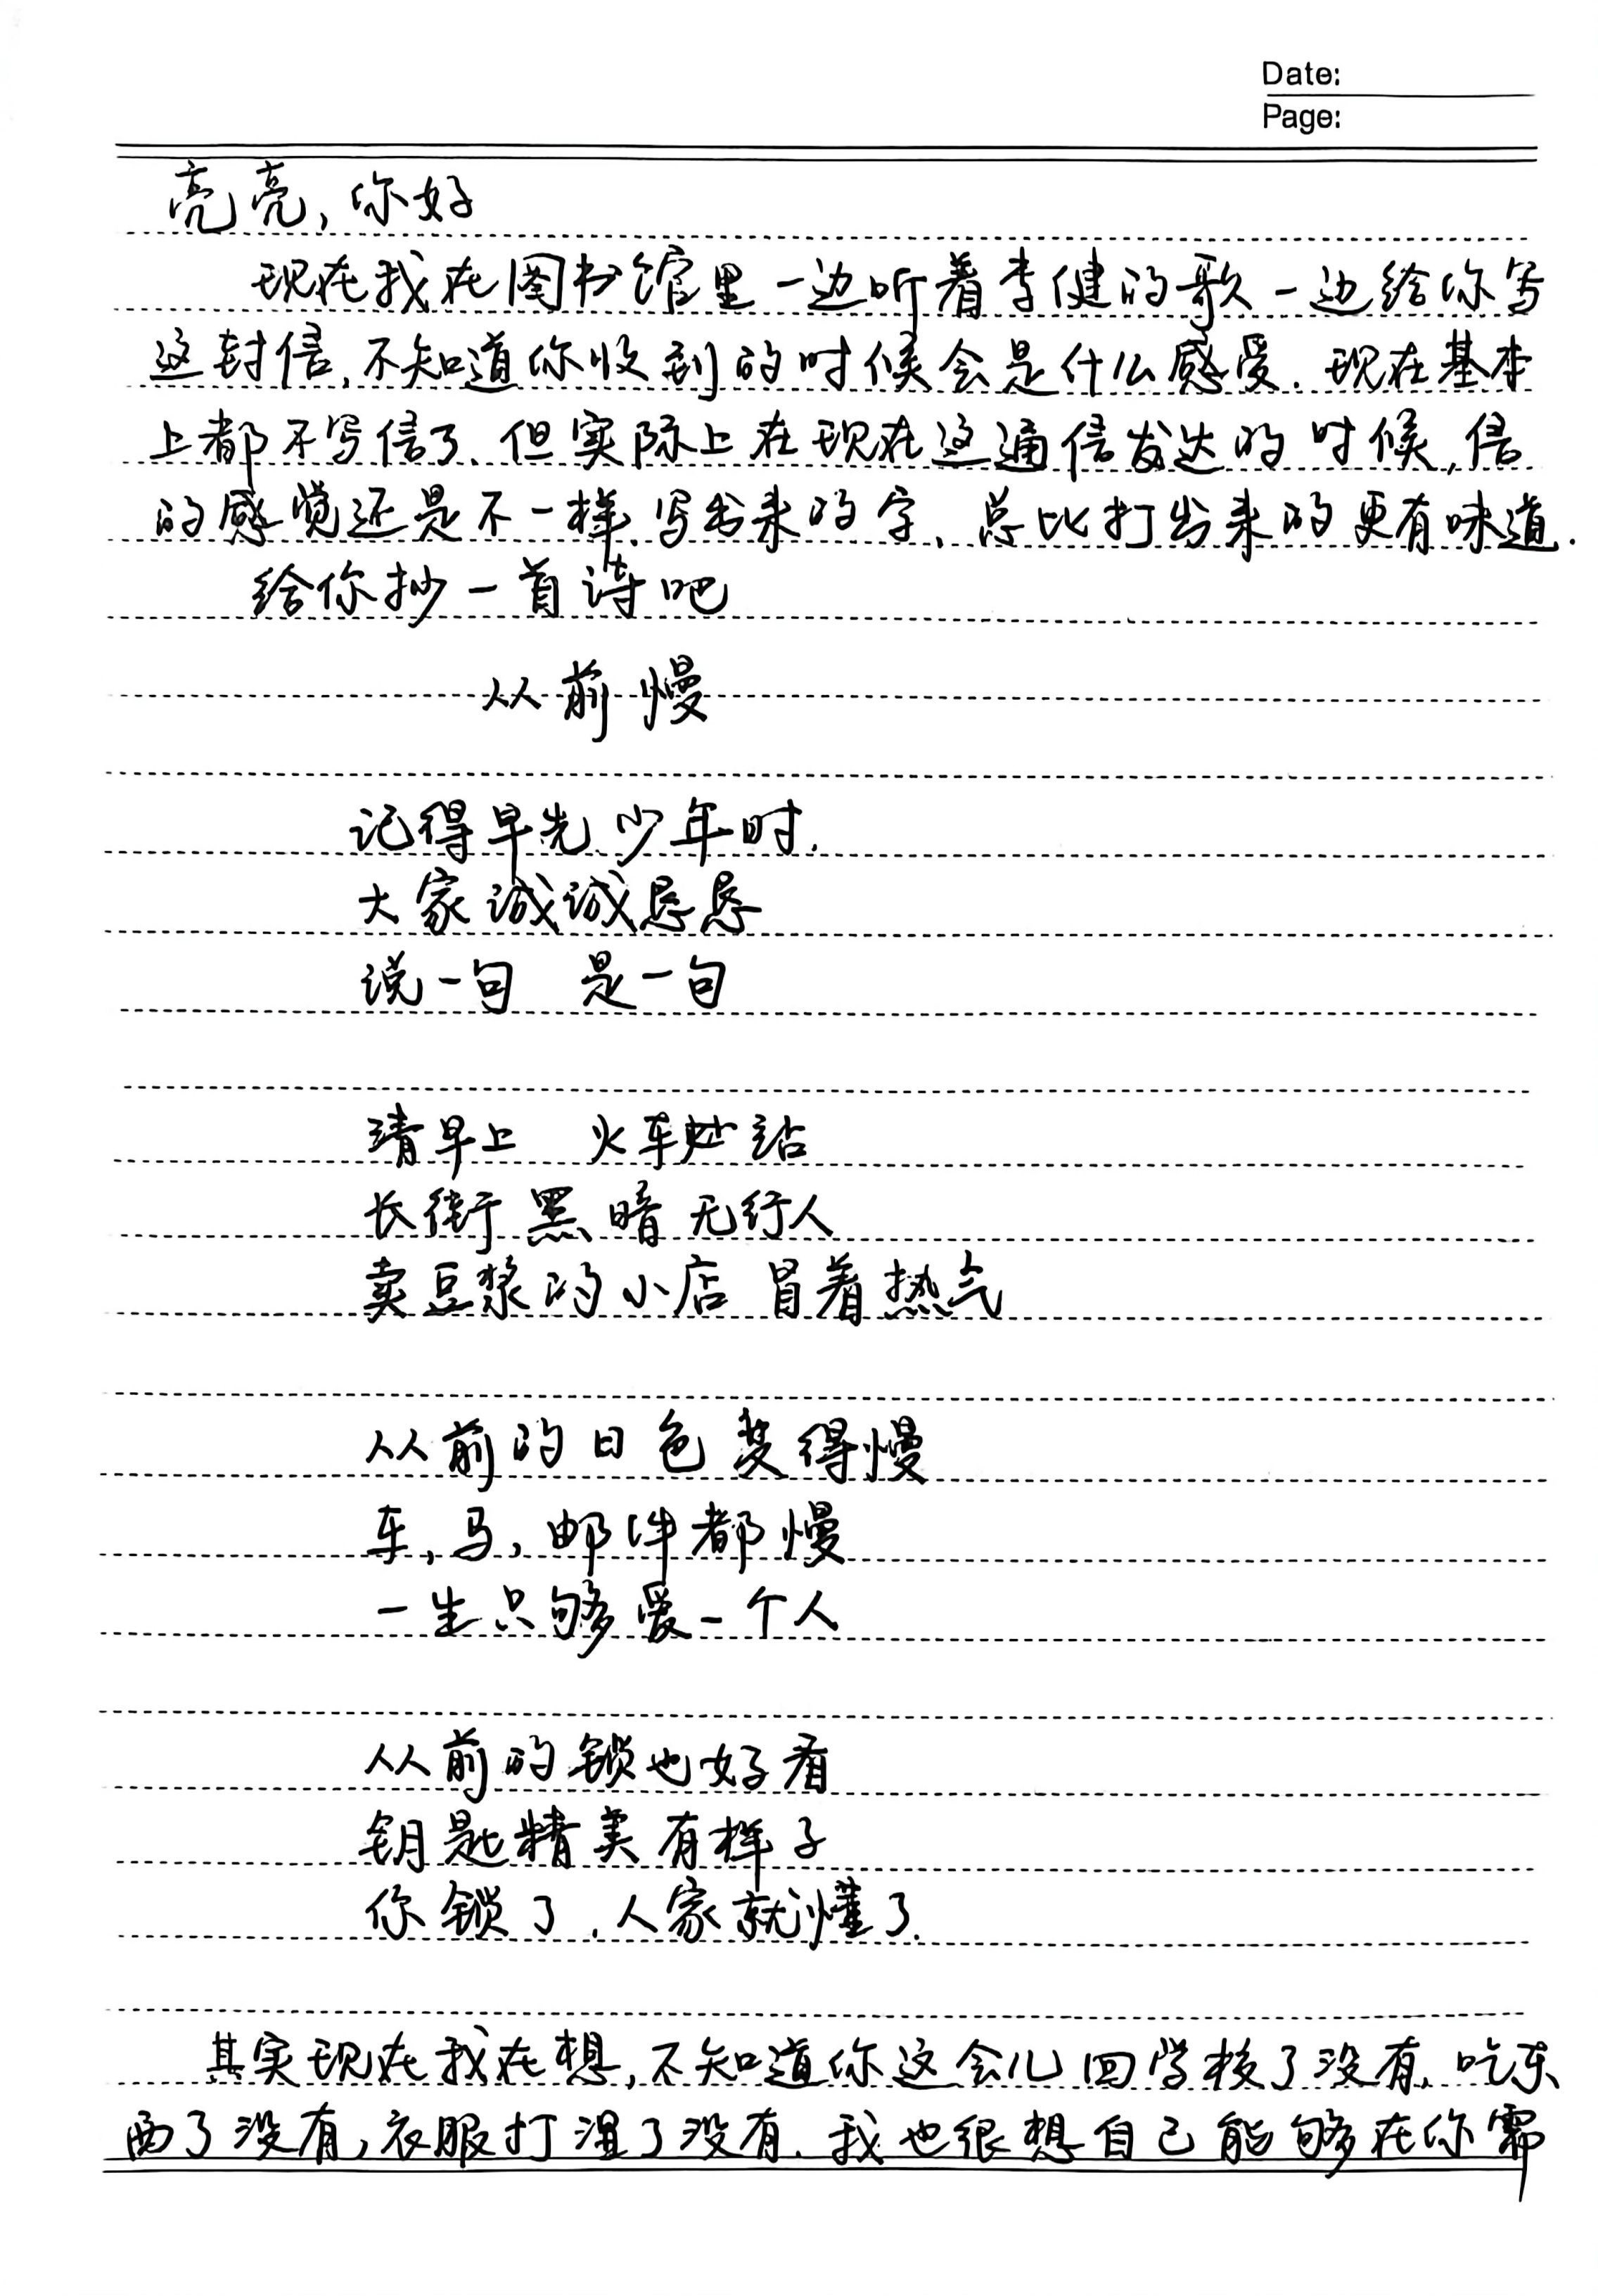 Date:
Page:
亮亮,你好
现在我在图书馆里一边听着李健的歌一边给你写
这封信,不知道你收到的时候会是什么感受.现在基本
上都不写信了、但实际上在现在这通信发达的时候,信
的感觉还是不一样、写出来的字、总比打出来的更有味道.
给你抄一首诗吧
从前慢
记得早先少年时.
大家诚诚恳恳
说一句 是一句
清早上 火车站
长街黑暗无行人
卖豆浆的小店冒着热气
从前的日色变得慢
车,马,邮件都慢
一生只够爱一个人
从前的锁也好看
钥匙精美有样子
你锁了.人家就懂了.
其实现在我在想,不知道你这会儿回学校了没有,吃东
西了没有,衣服打湿了没有.我也很想自己能够在你需